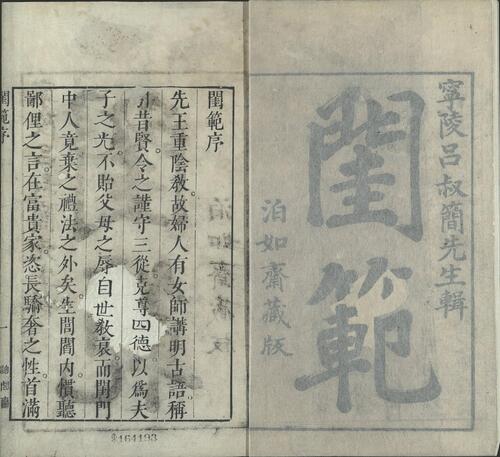 寧陵呂叔簡先生輯
閨範
泊如齋藏版
閨範序
先王重陰教故婦人有女師講明古語稱
引昔賢令之謹守三從克尊四德以爲夫
子之光不貽父母之辱自世教衰而閨門
中人竟棄之禮法之外矣生閭閻內慣聽
鄙俚之言在富貴家恣長驕奢之性首滿
閨範序
一
164193